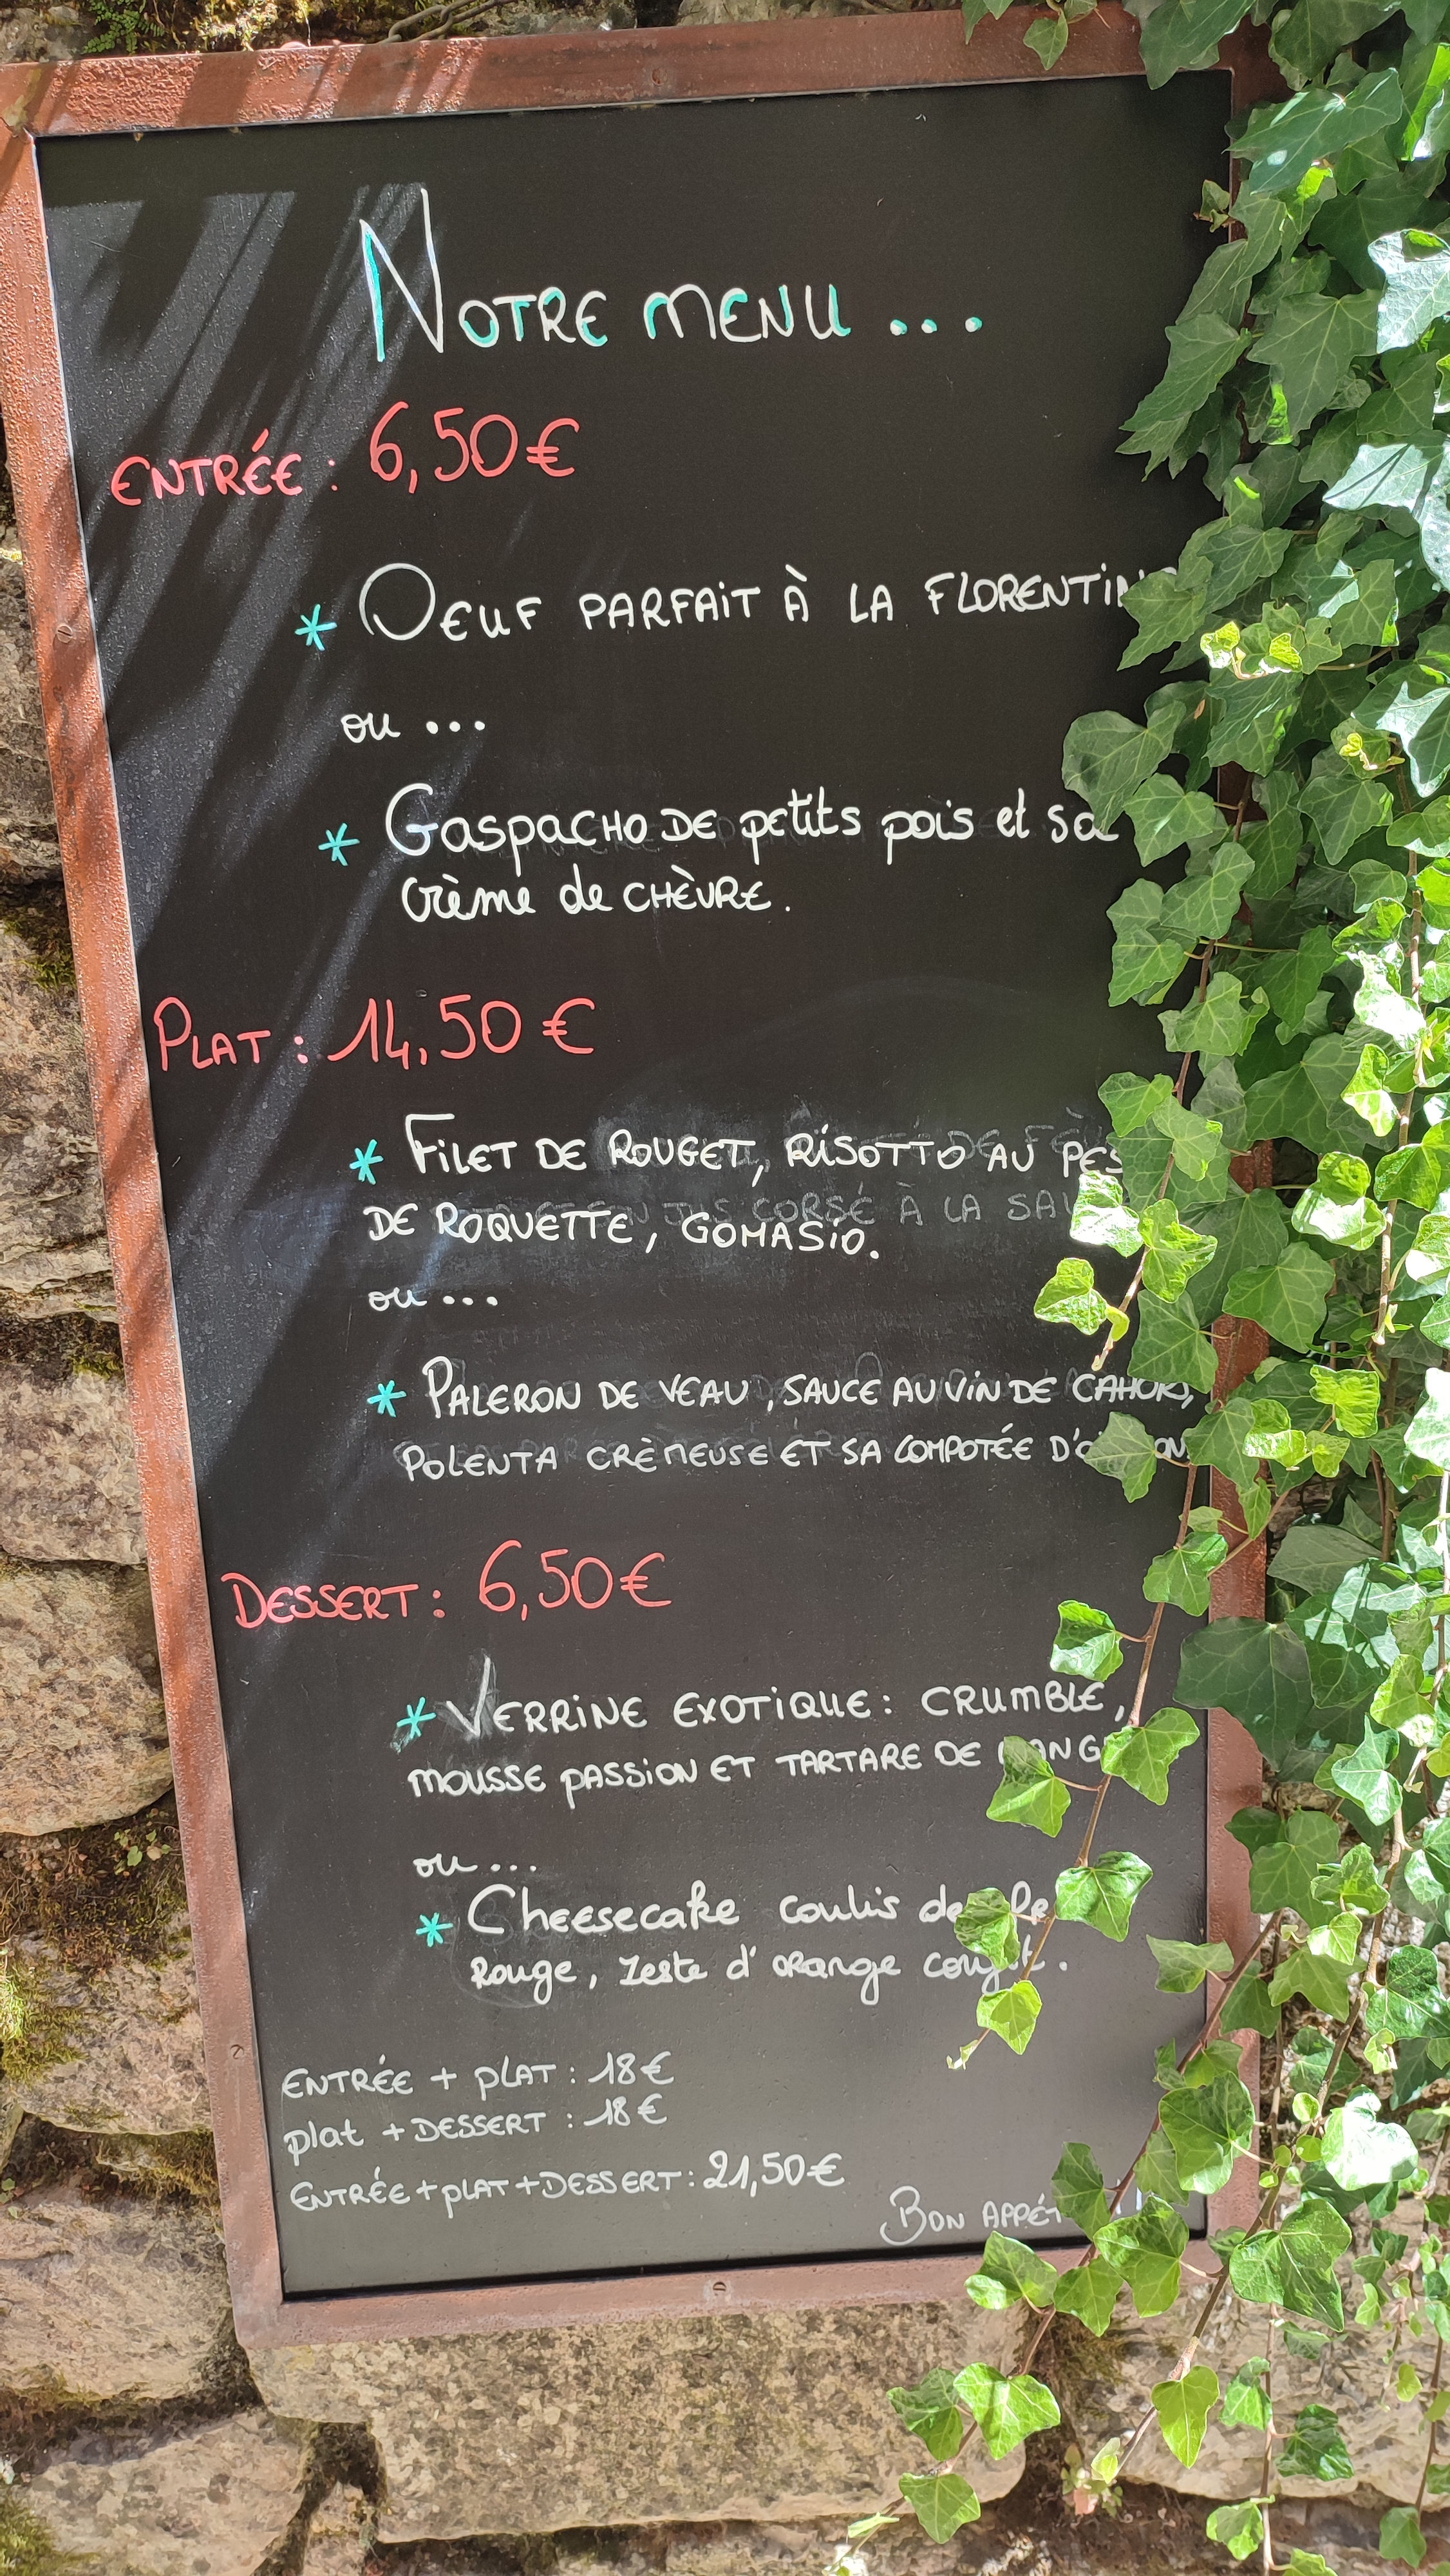 NOTRE MENU ...
ENTRÉE : 6,50€
* OEUF PARFAIT À LA FLORENTINE
ou ...
* GASPACHO DE petits pois et sa
crème de CHÈVRE.
PLAT : 14,50 €
* FILET DE ROUGET, RISOTTO AU PES
DE ROQUETTE, GOMASIO.
ou ...
* PALERON DE VEAU, SAUCE AU VIN DE CAHOR,
POLENTA CRÈMEUSE ET SA COMPOTÉE D'
DESSERT : 6,50€
* VERRINE EXOTIQUE : CRUMBLE,
MOUSSE PASSION ET TARTARE DE MANG
ou ...
* Cheesecake coulis de
Rouge, zeste d'orange confit.
ENTRÉE + PLAT : 18€
plat + DESSERT : 18€
ENTRÉE + PLAT + DESSERT : 21,50€
BON APPÉT